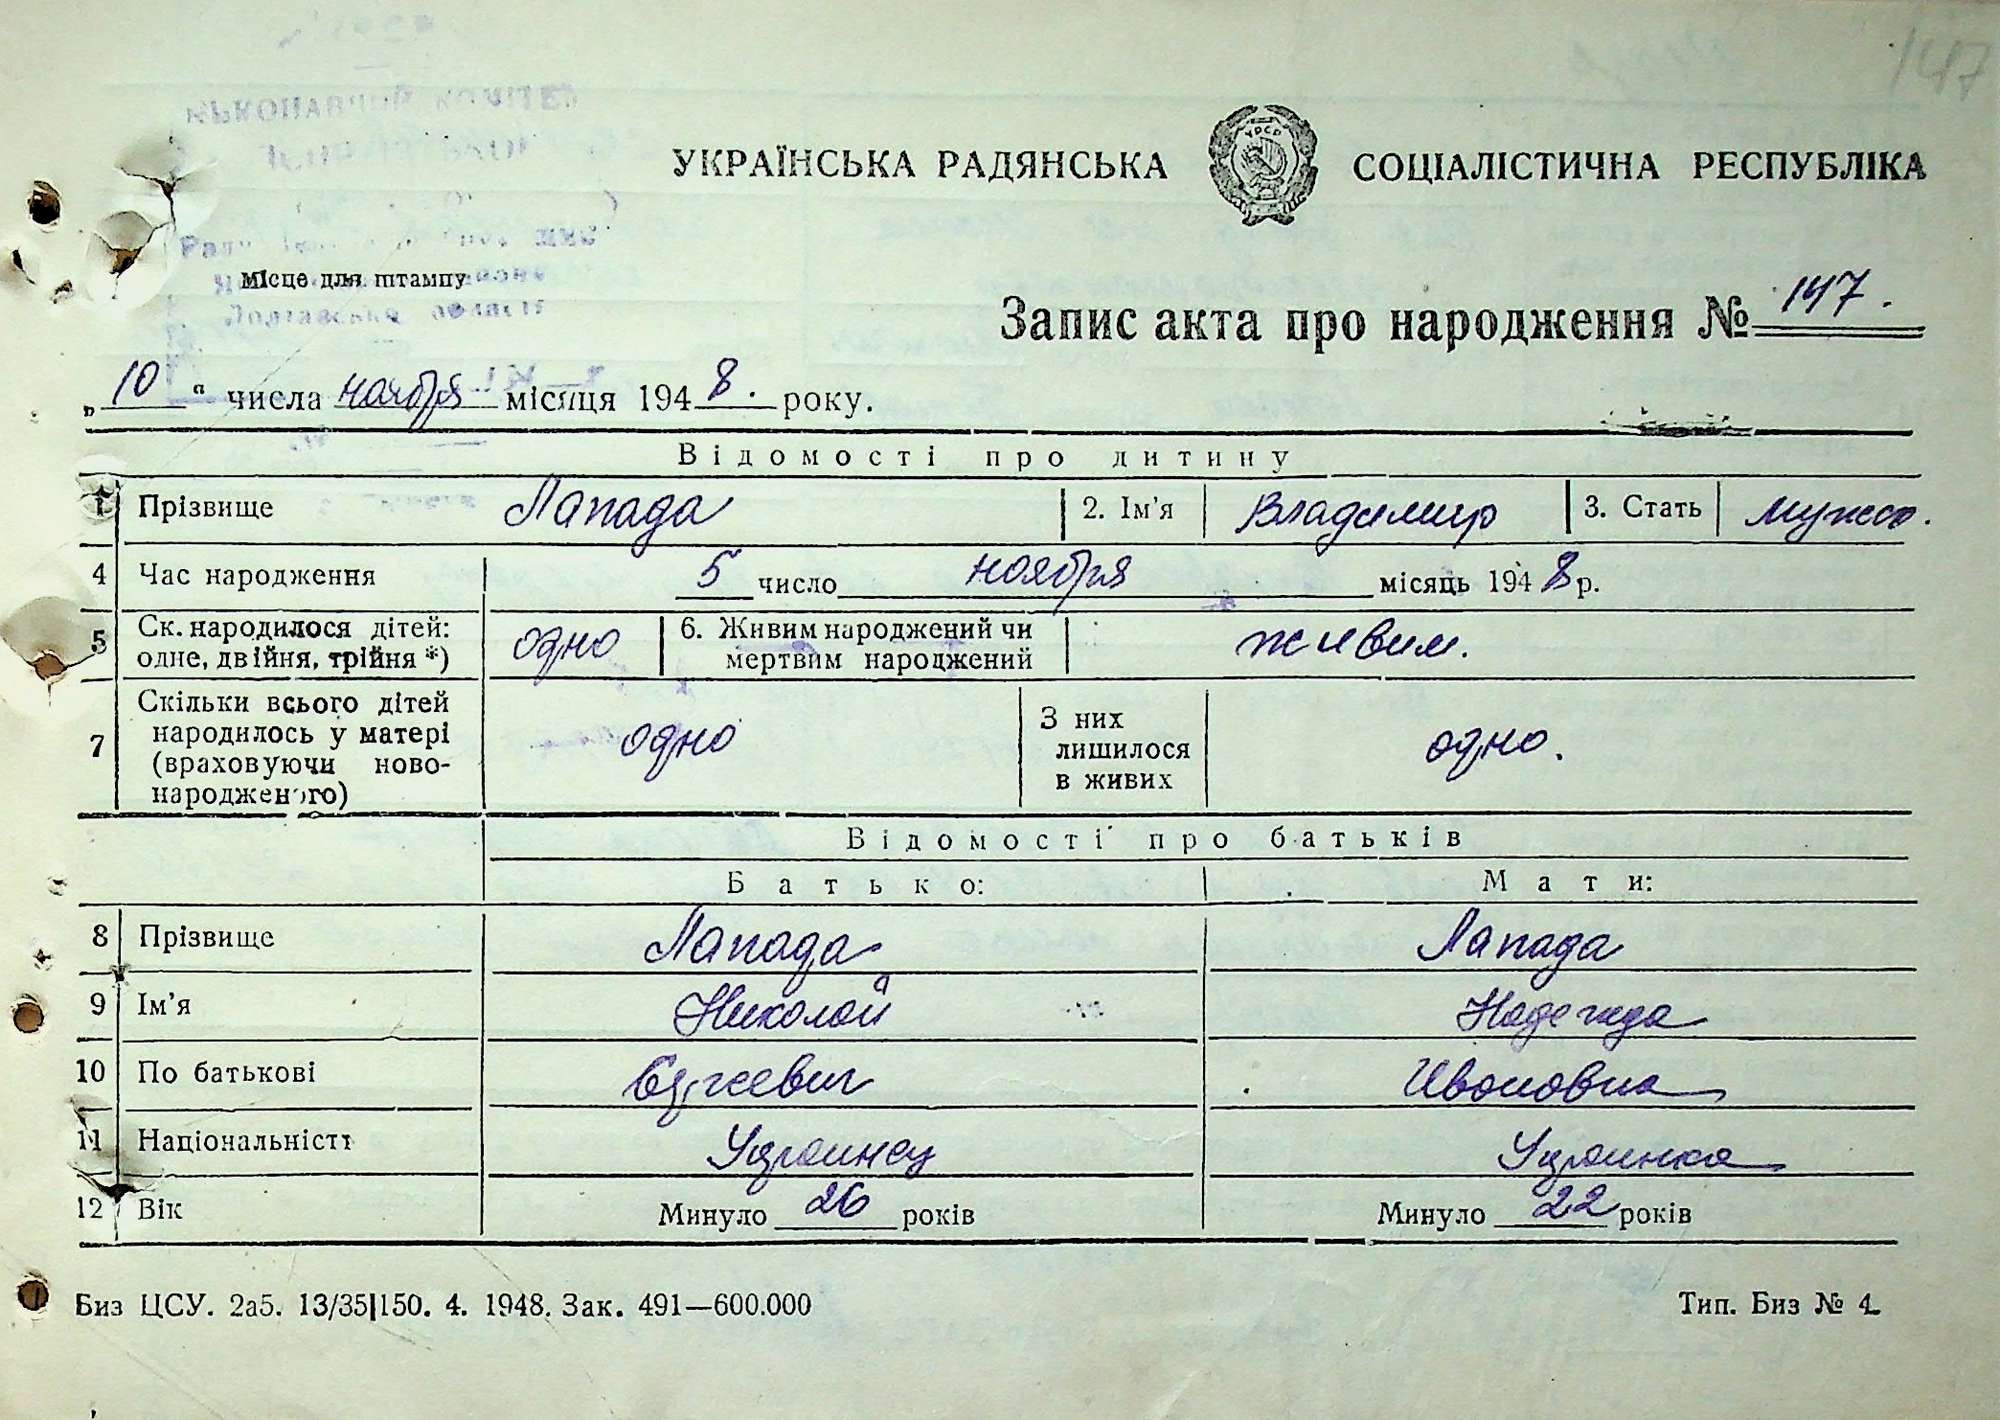 147
УКРАЇНСЬКА РАДЯНСЬКА СОЦІАЛІСТИЧНА РЕСПУБЛІКА
УРСР
Місце для штампу
Полтавської області
Запис акта про народження № 147.
„10“ числа ноября місяця 1948. року.
Відомості про дитину
1 Прізвище Лапада 2. Ім'я Владимир 3. Стать мужск.
4 Час народження 5 число ноября місяць 1948 р.
5 Ск. народилося дітей: одно 6. Живим народжений чи живим.
одне, двійня, трійня *) мертвим народжений
7 Скільки всього дітей
народилось у матері одно З них лишилося в живих одно.
(враховуючи ново-
народженого)
Відомості про батьків
Батько: Мати:
8 Прізвище Лапада Лапада
9 Ім'я Николай Надежда
10 По батькові Сергеевич Ивановна
11 Національність Украинец Украинка
12 Вік Минуло 26 років Минуло 22 років
Биз ЦСУ. 2а5. 13/35|150. 4. 1948. Зак. 491—600.000 Тип. Биз № 4